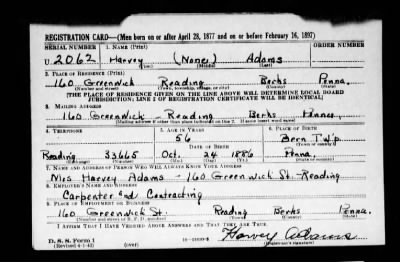 REGISTRATION CARD—(Men born on or after April 28, 1877 and on or before February 16, 1897)
SERIAL NUMBER 1. NAME (Print) ORDER NUMBER
U 2062 Harvey (None) Adams
(First) (Middle) (Last)
2. PLACE OF RESIDENCE (Print)
160 Greenwich Reading Berks Penna.
(Number and street) (Town, township, village, or city) (County) (State)
[THE PLACE OF RESIDENCE GIVEN ON THE LINE ABOVE WILL DETERMINE LOCAL BOARD
JURISDICTION; LINE 2 OF REGISTRATION CERTIFICATE WILL BE IDENTICAL]
3. MAILING ADDRESS
160 Greenwich Reading Berks Penna
[Mailing address if other than place indicated on line 2. If same insert word same]
4. TELEPHONE 5. AGE IN YEARS 6. PLACE OF BIRTH
56 Bern Twp.
DATE OF BIRTH (Town or county)
Reading 33665 Oct. 24 1886 Penna.
(Exchange) (Number) (Mo.) (Day) (Yr.) (State or country)
7. NAME AND ADDRESS OF PERSON WHO WILL ALWAYS KNOW YOUR ADDRESS
Mrs Harvey Adams - 160 Greenwich St - Reading
8. EMPLOYER'S NAME AND ADDRESS
Carpenter and Contracting
9. PLACE OF EMPLOYMENT OR BUSINESS
160 Greenwich St. Reading Berks Penna.
(Number and street or R. F. D. number) (Town) (County) (State)
I AFFIRM THAT I HAVE VERIFIED ABOVE ANSWERS AND THAT THEY ARE TRUE.
D. S. S. Form 1 Harvey Adams
(Revised 4-1-42) (over) (Registrant's signature)